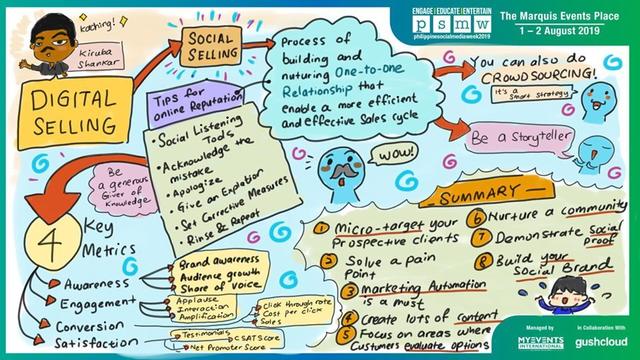 kaching!
Kiruba
Shankar
DIGITAL
SELLING
SOCIAL
SELLING
Process of
building and
nuturing One-to-one
Relationship that
enable a more efficient
and effective Sales cycle
ENGAGE | EDUCATE | ENTERTAIN
psmw
philippinesocialmediaweek2019
The Marquis Events Place
1 – 2 August 2019
You can also do
CROWDSOURCING!
It's a
smart strategy
Be a Storyteller
TIPS for
online Reputation
• Social Listening
Tools
• Acknowledge the
mistake
• Apologize
• Give an Explation
• Set Corrective Measures
• Rinse & Repeat
WOW!
Be
a generous
Giver of
knowledge
4
Key
Metrics
Awareness
Brand awareness
Audience growth
Share of voice
Engagement
Applause
Interaction
Amplification
Conversion
Click through rate
Cost per click
Sales
Satisfaction
Testimonials
CSAT Score
Net Promoter Score
SUMMARY
1 Micro-target your
Prospective clients
2 Solve a pain
Point
3 Marketing Automation
is a must
4 Create lots of content
5 Focus on areas where
Customers evaluate options
6 Nurture a community
7 Demonstrate Social
proof
8 Build your
Social Brand
Managed by
MYEVENTS
INTERNATIONAL
In Collaboration With
gushcloud